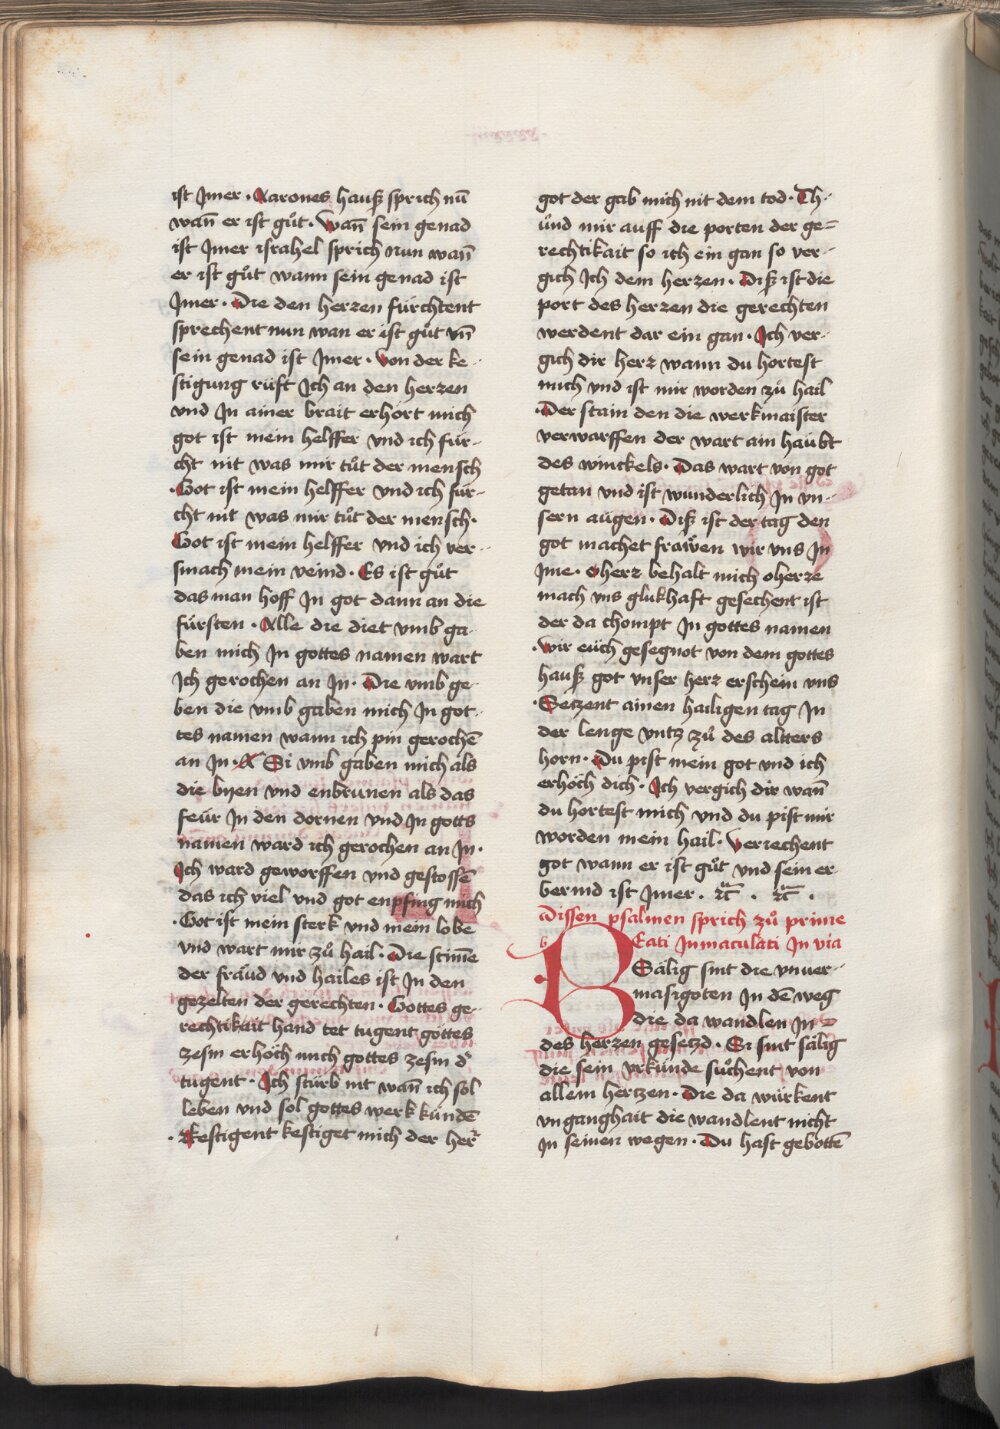 ist Jmer · Aarones hauß sprich nū
wan̄ er ist gůt · Wan̄ sein genad
ist Jmer israhel sprich nun wan̄
er ist gůt wann sein genad ist
Jmer · Die den herzen fürchtent
sprechent nun wan er ist gůt vn̄
sein genad ist Jmer · Von der ke-
stigung rüft Ich an den herzen
vnd Jn ainer brait erhört mich
got ist mein helffer vnd ich für-
cht nit was mir tůt der mensch
·Got ist mein helffer vnd ich für-
cht nit was mir tůt der mensch·
Got ist mein helffer vnd ich ver-
smach mein veind · Es ist gůt
das man hoff Jn got dann an die
fürsten · Alle die diet vmb ga-
ben mich Jn gottes namen wart
Ich gerochen an Jn · Die vmb ge-
ben die vmb gaben mich Jn got-
tes namen wann ich pin gerochē
an Jn · Si vmb gaben mich als
die byen vnd enbrunen als das
feür Jn den dornen vnd Jn gotts
namen ward ich gerochen an Jn·
Ich ward geworffen vnd gestossē
das ich viel vnd got enpfing mich
·Got ist mein sterk vnd mein lobe
vnd wart mir zů hail · Die stim̄e
der fräud vnd hailes ist Jn den
gezelten der gerechten · Gottes ge-
rechtikait hand tet tugent gottes
zesm erhöch mich gottes zesm d'
tugent · Ich stürb nit wan̄ ich sol
leben vnd sol gottes werk kündē
·Kestigent kestiget mich der her̄
got der gab mich nit dem tod · Th-
ůnd mir auff die porten der ge=
rechtikait so ich ein gan so ver-
gich Ich dem herzen · Diß ist die
port des herzen die gerechten
werdent dar ein gan · Ich ver-
gich dir herz wann du hortest
mich vnd ist mir worden zů hail
·Der stain den die werkmaister
verwarffen der wart ain haubt
des winckels · Das wart von got
getan vnd ist wunderlich Jn vn-
sern augen · Diß ist der tag den
got machet frawen wir vns Jn
Jme · O herz behalt mich o herze
mach vns glukhaft gesechent ist
der da chompt Jn gottes namen
·Wir eüch gesegnot von dem gottes
hauß got vnser herz erschein vns
·Setzent ainen hailigen tag Jn
der lenge vntz zů des altters
horn · Du pist mein got vnd ich
erhöch dich · Ich vergich dir wan̄
du hortest mich vnd du pist mir
worden mein hail · Veriechent
got wann er ist gůt vnd sein er
bermd ist Jmer · ꝛc̄ · ꝛc̄ ·
Dissen psalmen sprich zů prime
Beati Jnmaculati Jn via
Sälig sint die vnuer-
masigoten Jn dē weg
die da wandlen Jn
des herzen gesetzd · Si sint sälig
die sein vrkünde sůchent von
allem hertzen · Die da würkent
vnganghait die wandlent nicht
Jn seinen wegen · Du hast gebottē